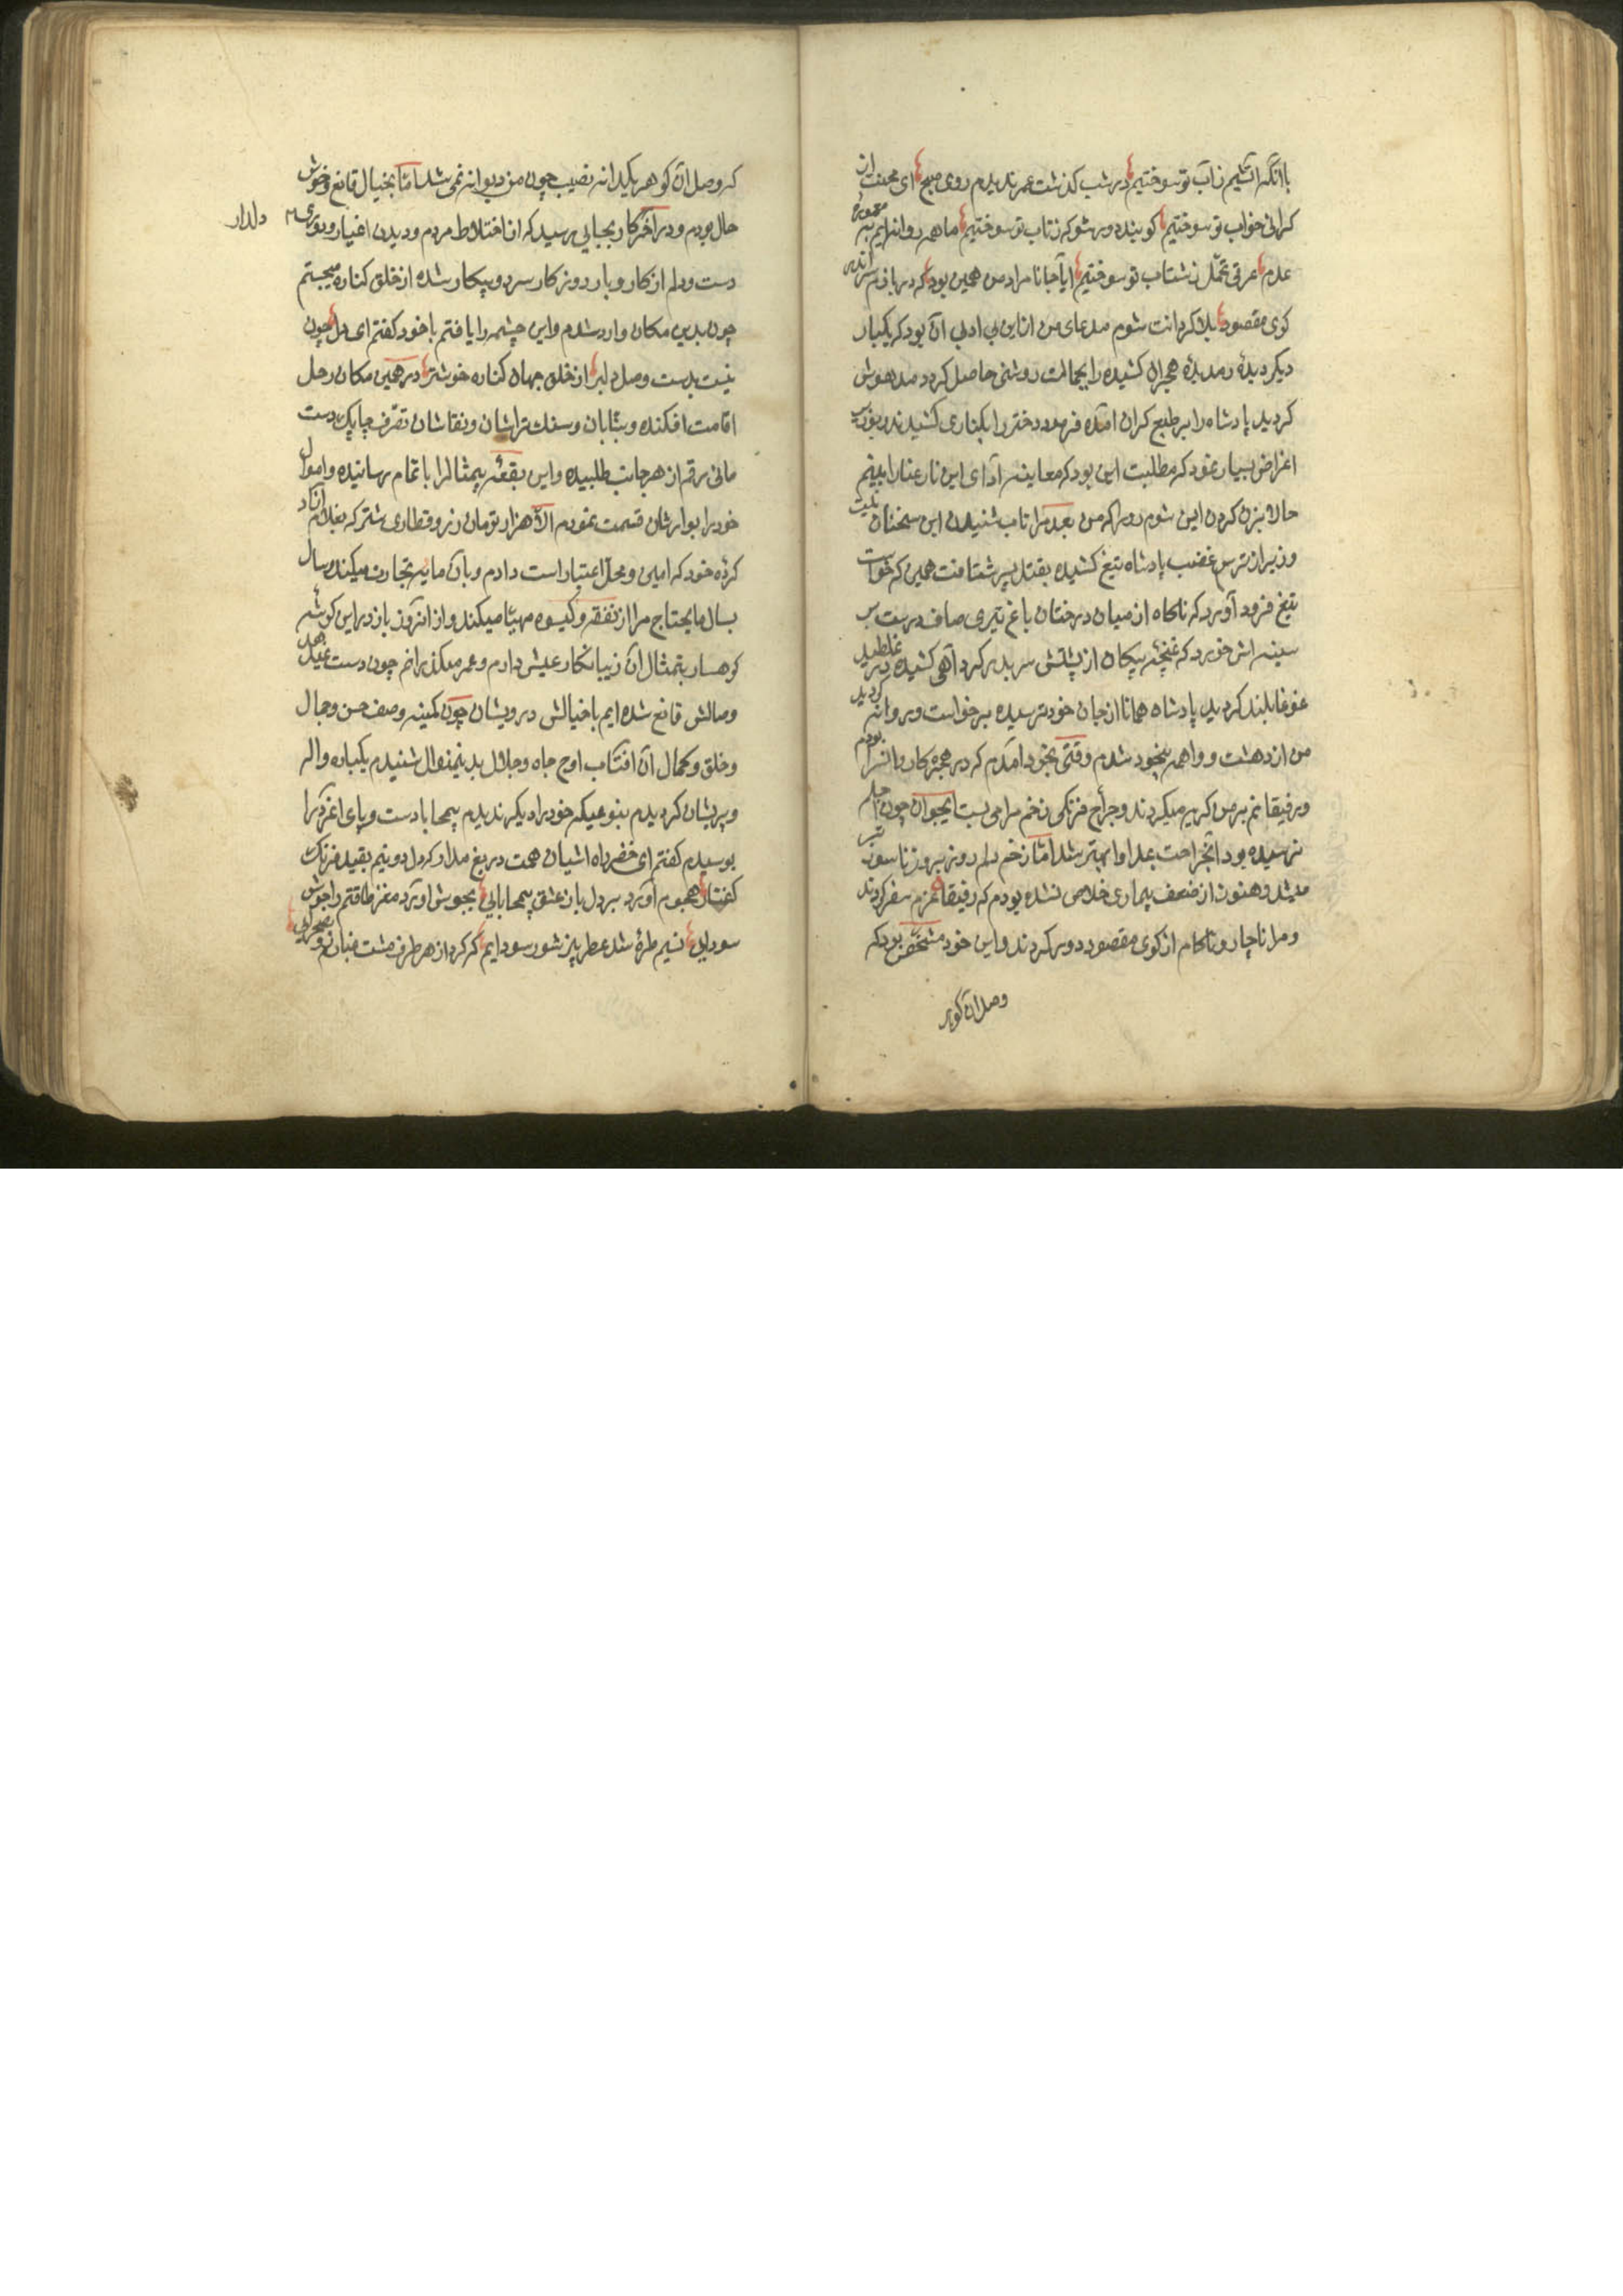 با آنکه آتشیم ز آب تو سوختیم در شب کذشت عمر ندیدیم روی صبح ای محنت از
کرانی خواب تو سوختیم کوینده دور شو که ز تاب تو سوختیم ما هم روانه ایم به معموره
عدم عرفی تحمّل ز شتاب تو سوختیم آیا جانا مراد من همین بود که در بازم سر اندر
کوی مقصود بلا کردانت شوم مدعای من از این بی ادبی آن بود که یکبار
دیکر دیدۀ رمد یدۀ هجران کشیده را بجمالت روشنی حاصل کردد مدهوش
کردید پادشاه را بر طبع کران آمده فرمود دختر را بکناری کشیدند و بوزیر
اعراض بسیار نمود که مطلبت این بود که معاینه آدای این نار عنا را ببینم
حالا بزن کردن این شوم رو را که من بعد مرا تاب شنیدن این سخنان نیست
وزیر از ترس غضب پادشاه تیغ کشیده بقتل پسر شتافت همین که خواست
تیغ فرود آورد که ناکاه از میان درختان باغ تیری صاف درست بر
سینه اش خورد که غنچۀ پیکان از پشتش سر بدر کرد آهی کشیده در غلطید
غوغا بلند کردید پادشاه همانا از جان خود ترسیده برخواست و روانه کردید
من از دهشت و واهمه بیخود شدم وقتی بخود آمدم که در حجره کاروانسرا بودم
و رفیقانم بر من کریه میکردند و جرّاح فرنکی زخم مرا می بست ایجوان چون اجلم
نرسیده بود آنجراحت بمداوا بهتر شد امّا زخم دلم روز بروز ناسور تر
میشد و هنوز از ضعف بیماری خلاص نشده بودم که رفیقانم عزم سفر کردند
و مرا ناچار و ناکام از کوی مقصود دور کردند و این خود مشخّص بود که
وصل آن کوهر
که وصل آن کوهر یکدانه نصیب چون من دیوانه نمی شد امّا بخیال قانع و خوش
حال بودم و در آخر کار بجایی رسید که از اختلاط مردم و دیدن اغیار و دوری
دلدار
دست و دلم از کار و بار روزکار سرد و بیکار شده از خلق کناره میجستم
چون بدین مکان وارد شدم و این چشمه را یافتم با خود کفتم ای دل چون
نیست بدست وصل دلبر از خلق جهان کناره خوشتر در همین مکان رحل
اقامت افکنده و بنّایان و سنک تراشان و نقاشان تصرّف چابک دست
مانی رقم از هر جانب طلبیده و این بقعۀ بیمثال را باتمام رسانیده و اموال
خود را بوارثان قسمت نمودم الّا هزار تومان زر و قطاری شتر که بغلام آزاد
کردۀ خود که امین و محلّ اعتبار است دادم و بآن مایه تجارت میکند و سال
بسال مایحتاج مرا از نفقه و کسوه مهیّا میکند و از آنروز باز در این کوشه
کوهسار بتمثال آن زیبا نکار عیش دارم و عمر میکذرانم چون دست نمیدهد
وصالش قانع شده ایم با خیالش درویشان چون کمینه وصف حسن و جمال
و خلق و کمال آن آفتاب اوج جاه و جلال بدینمنوال شنیدم یکباره واله
و پریشان کردیدم بنوعیکه خود را دیکر ندیدم بیمحابا دست و پای اعزّه را
بوسیدم کفتم ای خضر راه آشیان همت دریغ مدار که دل دو نیم بقید فرنک
کفتار هجوم آورد بر دل باز عشق بیمحابایی بجوش آورد مغز طاقتم را جوش
سودایی نسیم طرۀ شد عطر بیز شور سودایم که کرد از هر طرف مشت غبارم و صحرایی